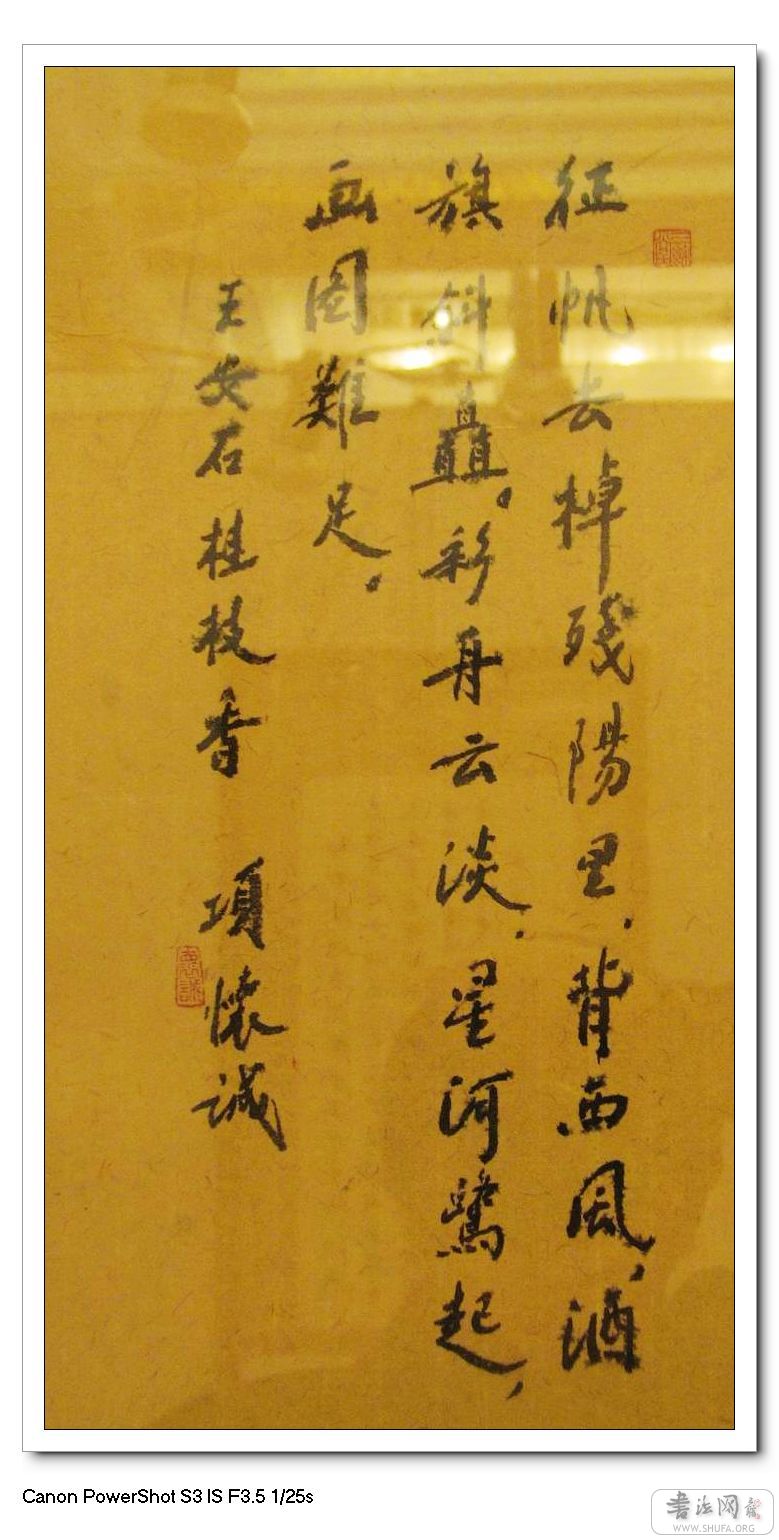 征帆去棹残陽里，背西风，酒
旗斜矗。彩舟云淡，星河鹭起，
画图難足。
王安石桂枝香 項懷誠
Canon PowerShot S3 IS F3.5 1/25s
書法网
WWW.SHUFA.ORG